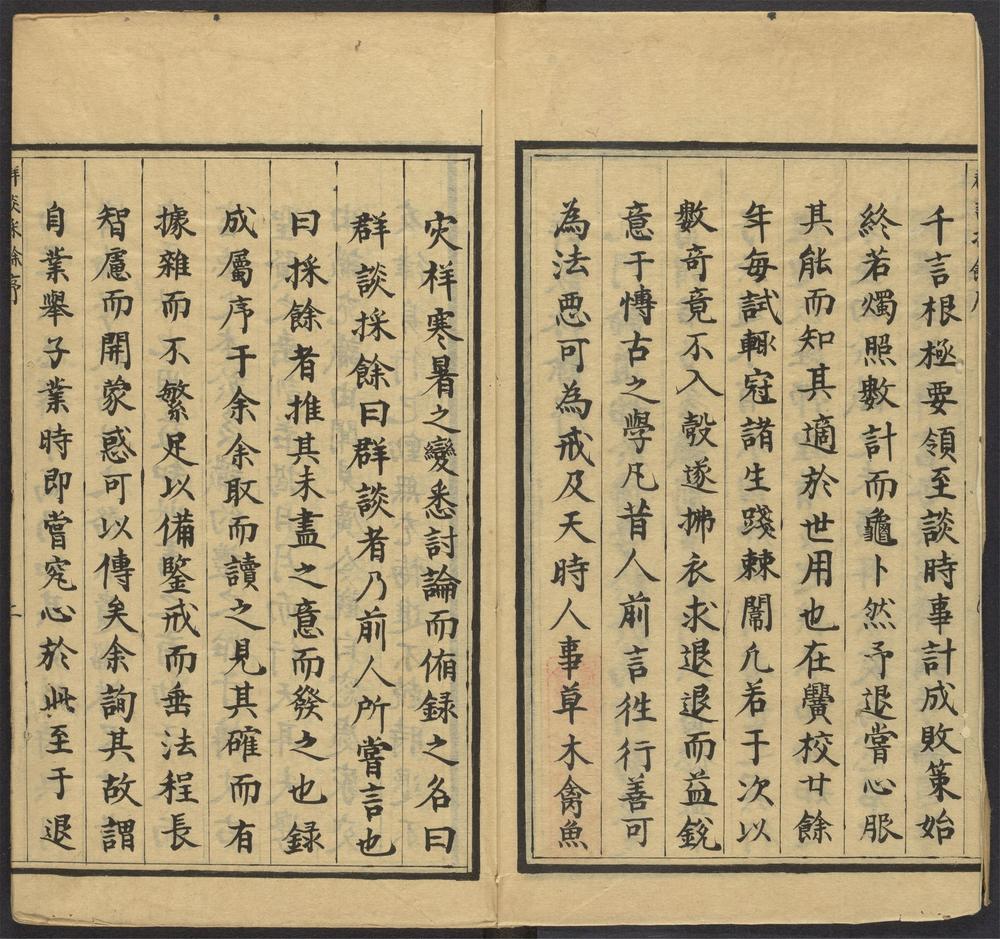 千言根極要領至談時事計成敗策始
終若燭照數計而龜卜然予退嘗心服
其能而知其適於世用也在黌校廿餘
年每試輒冠諸生踐棘闈凡若干次以
數奇竟不入彀遂拂衣求退退而益銳
意于慱古之學凡昔人前言徃行善可
為法惡可為戒及天時人事草木禽魚
灾祥寒暑之變悉討論而俻録之名曰
群談採餘曰群談者乃前人所嘗言也
曰採餘者推其未盡之意而發之也録
成屬序于余余取而讀之見其確而有
據雜而不繁足以備鑒戒而垂法程長
智慮而開蒙惑可以傳矣余詢其故謂
自業舉子業時即嘗究心於此至于退
群談採餘序
二